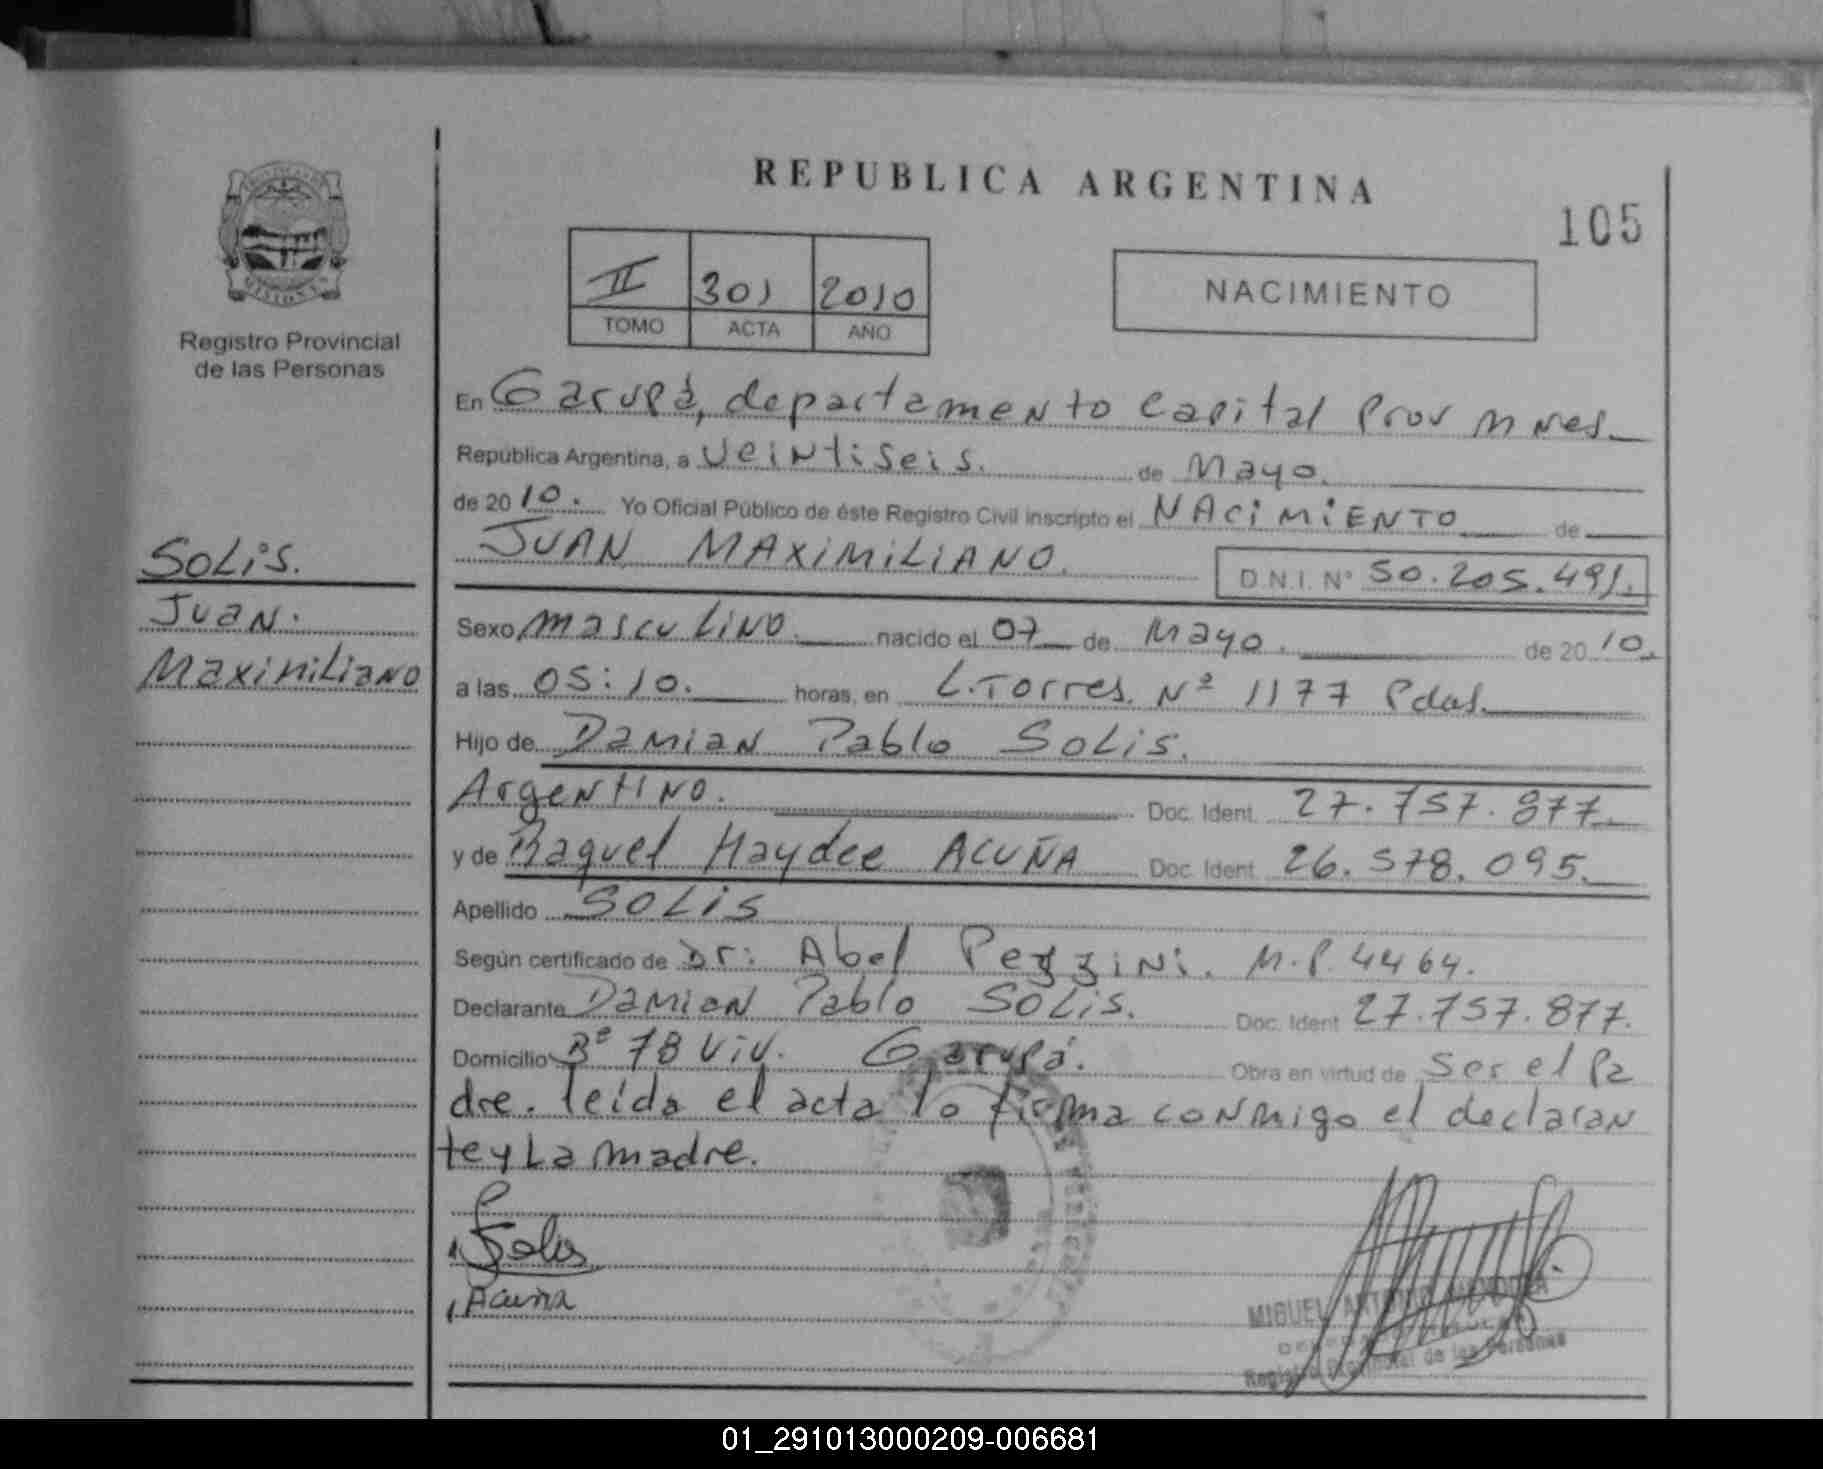 REPUBLICA ARGENTINA
105
MISIONES
Registro Provincial
de las Personas
II 301 2010
TOMO ACTA AÑO
NACIMIENTO
Solis.
Juan.
Maximiliano
En Garupá, departamento Capital Prov Mnes.
República Argentina, a veintiseis. de Mayo.
de 2010. Yo Oficial Público de éste Registro Civil inscripto el NACIMIENTO de
JUAN MAXIMILIANO. D.N.I. N° 50.205.491.
Sexo masculino. nacido el 07 de Mayo. de 2010.
a las 05:10. horas, en L. Torres. Nº 1177 Pdas.
Hijo de Damian Pablo Solis.
Argentino. Doc. Ident. 27.757.877.
y de Raquel Haydee ACUÑA Doc. Ident. 26.578.095.
Apellido SOLIS
Según certificado de Dr: Abel Pezzini. M.P. 4464.
Declarante Damian Pablo Solis. Doc. Ident 27.757.877.
Domicilio Bº 78 Viv. Garupá. Obra en virtud de ser el pa
dre. leida el acta la firma conmigo el declaran
te y La madre.
Solis
Acuña
MIGUEL ANTONIO
Registro Provincial de las Personas
01_291013000209-006681